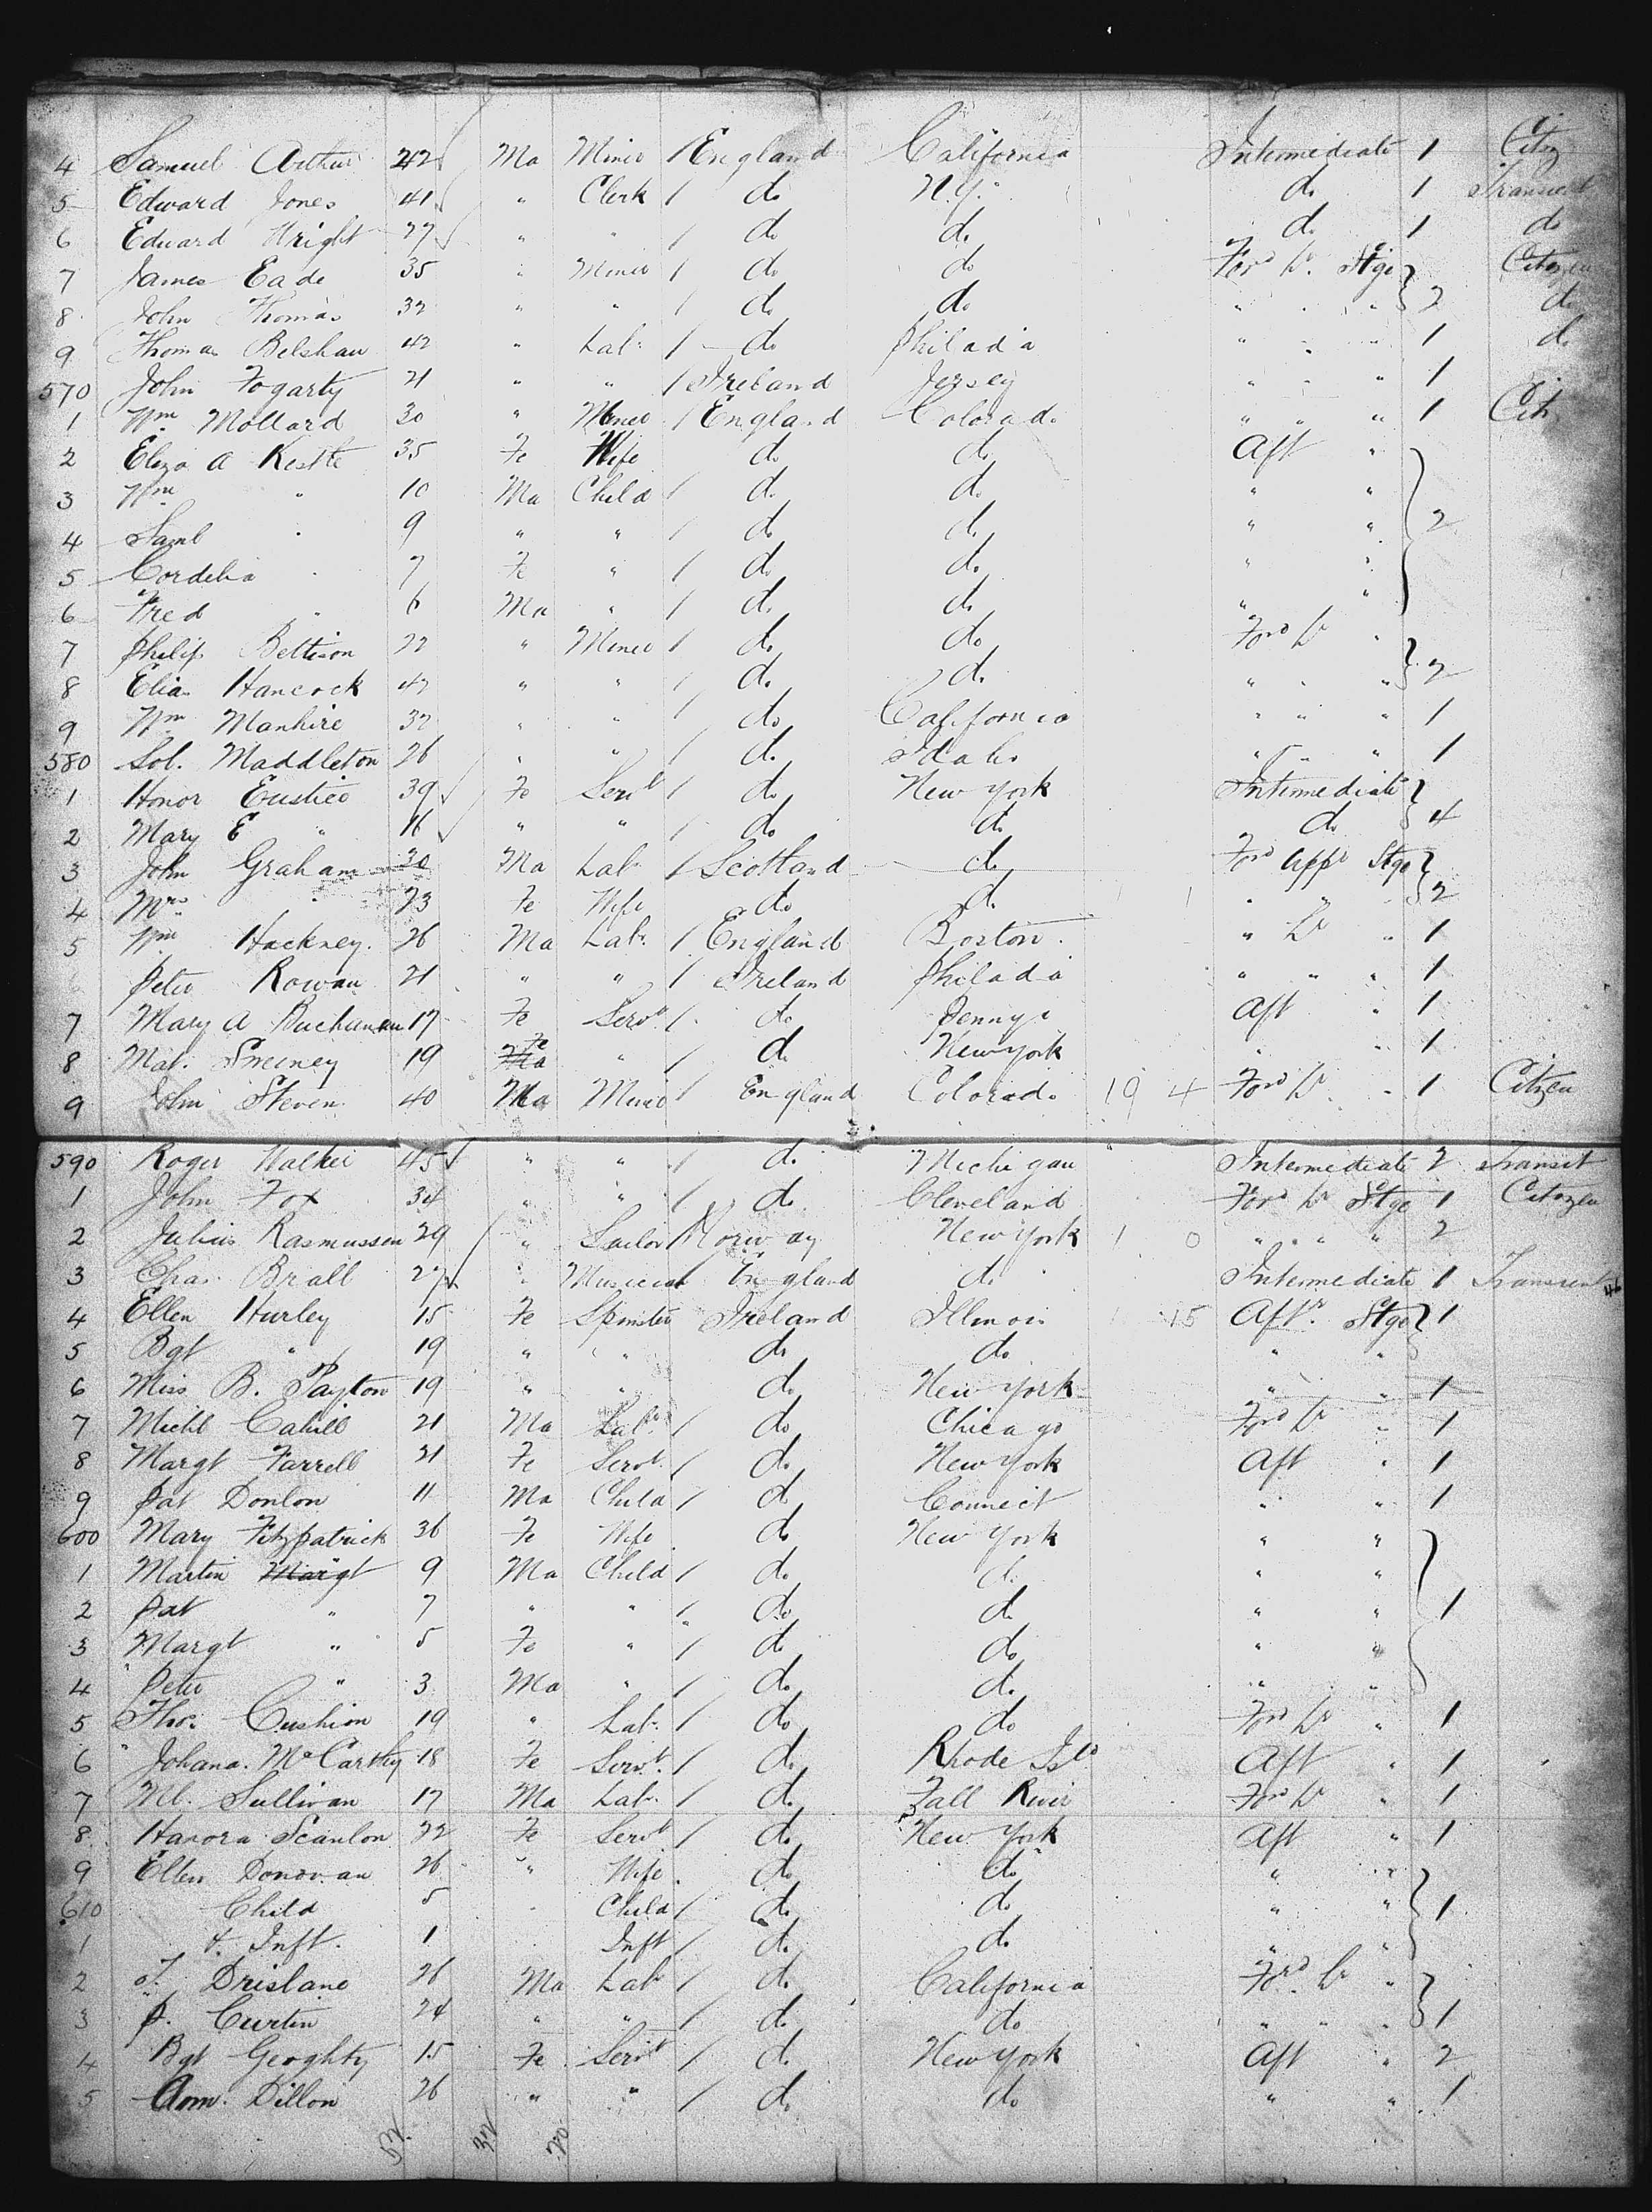 4 Samuel Arthur 42 Ma Miner 1 England California Intermediate 1 Citz
5 Edward Jones 41 " Clerk 1 do N.Y. do 1 Transient
6 Edward Wright 27 " " 1 do do do 1 do
7 James Eade 35 " Miner 1 do do Ford Lr. Stge Citizen
8 John Thomas 32 " " 1 do do " " " 2 do
9 Thomas Belshaw 42 " Labr 1 do Philada " " " 1 do
570 John Fogarty 21 " " 1 Ireland Jersey " " " 1
1 Wm Mollard 30 " Miner 1 England Colorado " " " 1 Citz
2 Eliza A Kestle 35 Fe Wife do do Aft "
3 Wm " 10 Ma Child 1 do do " "
4 Saml " 9 " " 1 do do " " 2
5 Cordelia " 7 Fe " 1 do do " "
6 Fred " 6 Ma " 1 do do " "
7 Philip Bettison 22 " Miner 1 do do Ford Lr "
8 Elias Hancock 42 " " 1 do do " " " 2
9 Wm Manhire 32 " " 1 do California " " " 1
580 Sol. Maddleton 26 " " 1 do Idaho " " " 1
1 Honor Eustice 39 Fe Servt 1 do New York Intermediate
2 Mary E " 16 " " 1 do do do 4
3 John Graham 30 Ma Labr 1 Scotland do Ford Uppr Stge
4 Mrs " 23 Fe Wife do do " " " 2
5 Wm Hackney 26 Ma Labr 1 England Boston " Lr " 1
Peter Rowan 21 " " 1 Ireland Philada " " " 1
7 Mary A Buchanan 17 Fe Servt 1 do Pennya Aft " 1
8 Mat. Sweeney 19 Fe " 1 do New York " " 1
9 John Steven 40 Ma Miner 1 England Colorado 19 4 Ford Lr " 1 Citzen
590 Roger Walker 45 " " 1 do Michigan Intermediate 2 Transit
1 John Fox 34 " " 1 do Cleveland Ford Lr Stge 1 Citozen
2 Julius Rasmussen 29 " Sailor 1 Norway New York 1 0 " " " 2
3 Chas. Brall 27 " Musician 1 England do Intermediate 1 Transient
4 Ellen Hurley 15 Fe Spinster Ireland Illinois 15 Aftr. Stge 1
5 Bgt " 19 " " do do " "
6 Miss B. Payton 19 " " do New York " " 1
7 Michl Cahill 21 Ma Labr 1 do Chicago Ford Lr " 1
8 Margt Farrell 21 Fe Servt 1 do New York Aft " 1
9 Pat Donlon 11 Ma Child 1 do Connect " " 1
600 Mary Fitzpatrick 36 Fe Wife do New York " "
1 Martin Margt 9 Ma Child 1 do do " "
2 Pat " 7 " " 1 do do " " 1
3 Margt " 5 Fe " 1 do do " "
4 Peter " 3 Ma " 1 do do " "
5 Thos. Cushion 19 " Labr 1 do do Ford Lr " 1
6 Johana. McCarthy 18 Fe Servt. 1 do Rhode Isld Aft " 1
7 Ml. Sullivan 17 Ma Labr 1 do Fall River Ford Lr " 1
8 Hanora Scanlon 22 Fe Servt 1 do New York Aft " 1
9 Ellen Donovan 26 " Wife do do " "
610 Child 5 Child 1 do do " " 1
1 & Inft. 1 Inft 1 do do " "
2 J. Drislane 26 Ma Labr 1 do California Ford Lr "
3 P. Curtin 24 " " 1 do do " " " 1
4 Bgt Geoghty 15 Fe Servt 1 do New York Aft " 2
5 Ann. Dillon 26 " " 1 do do " " 1
52 32 20